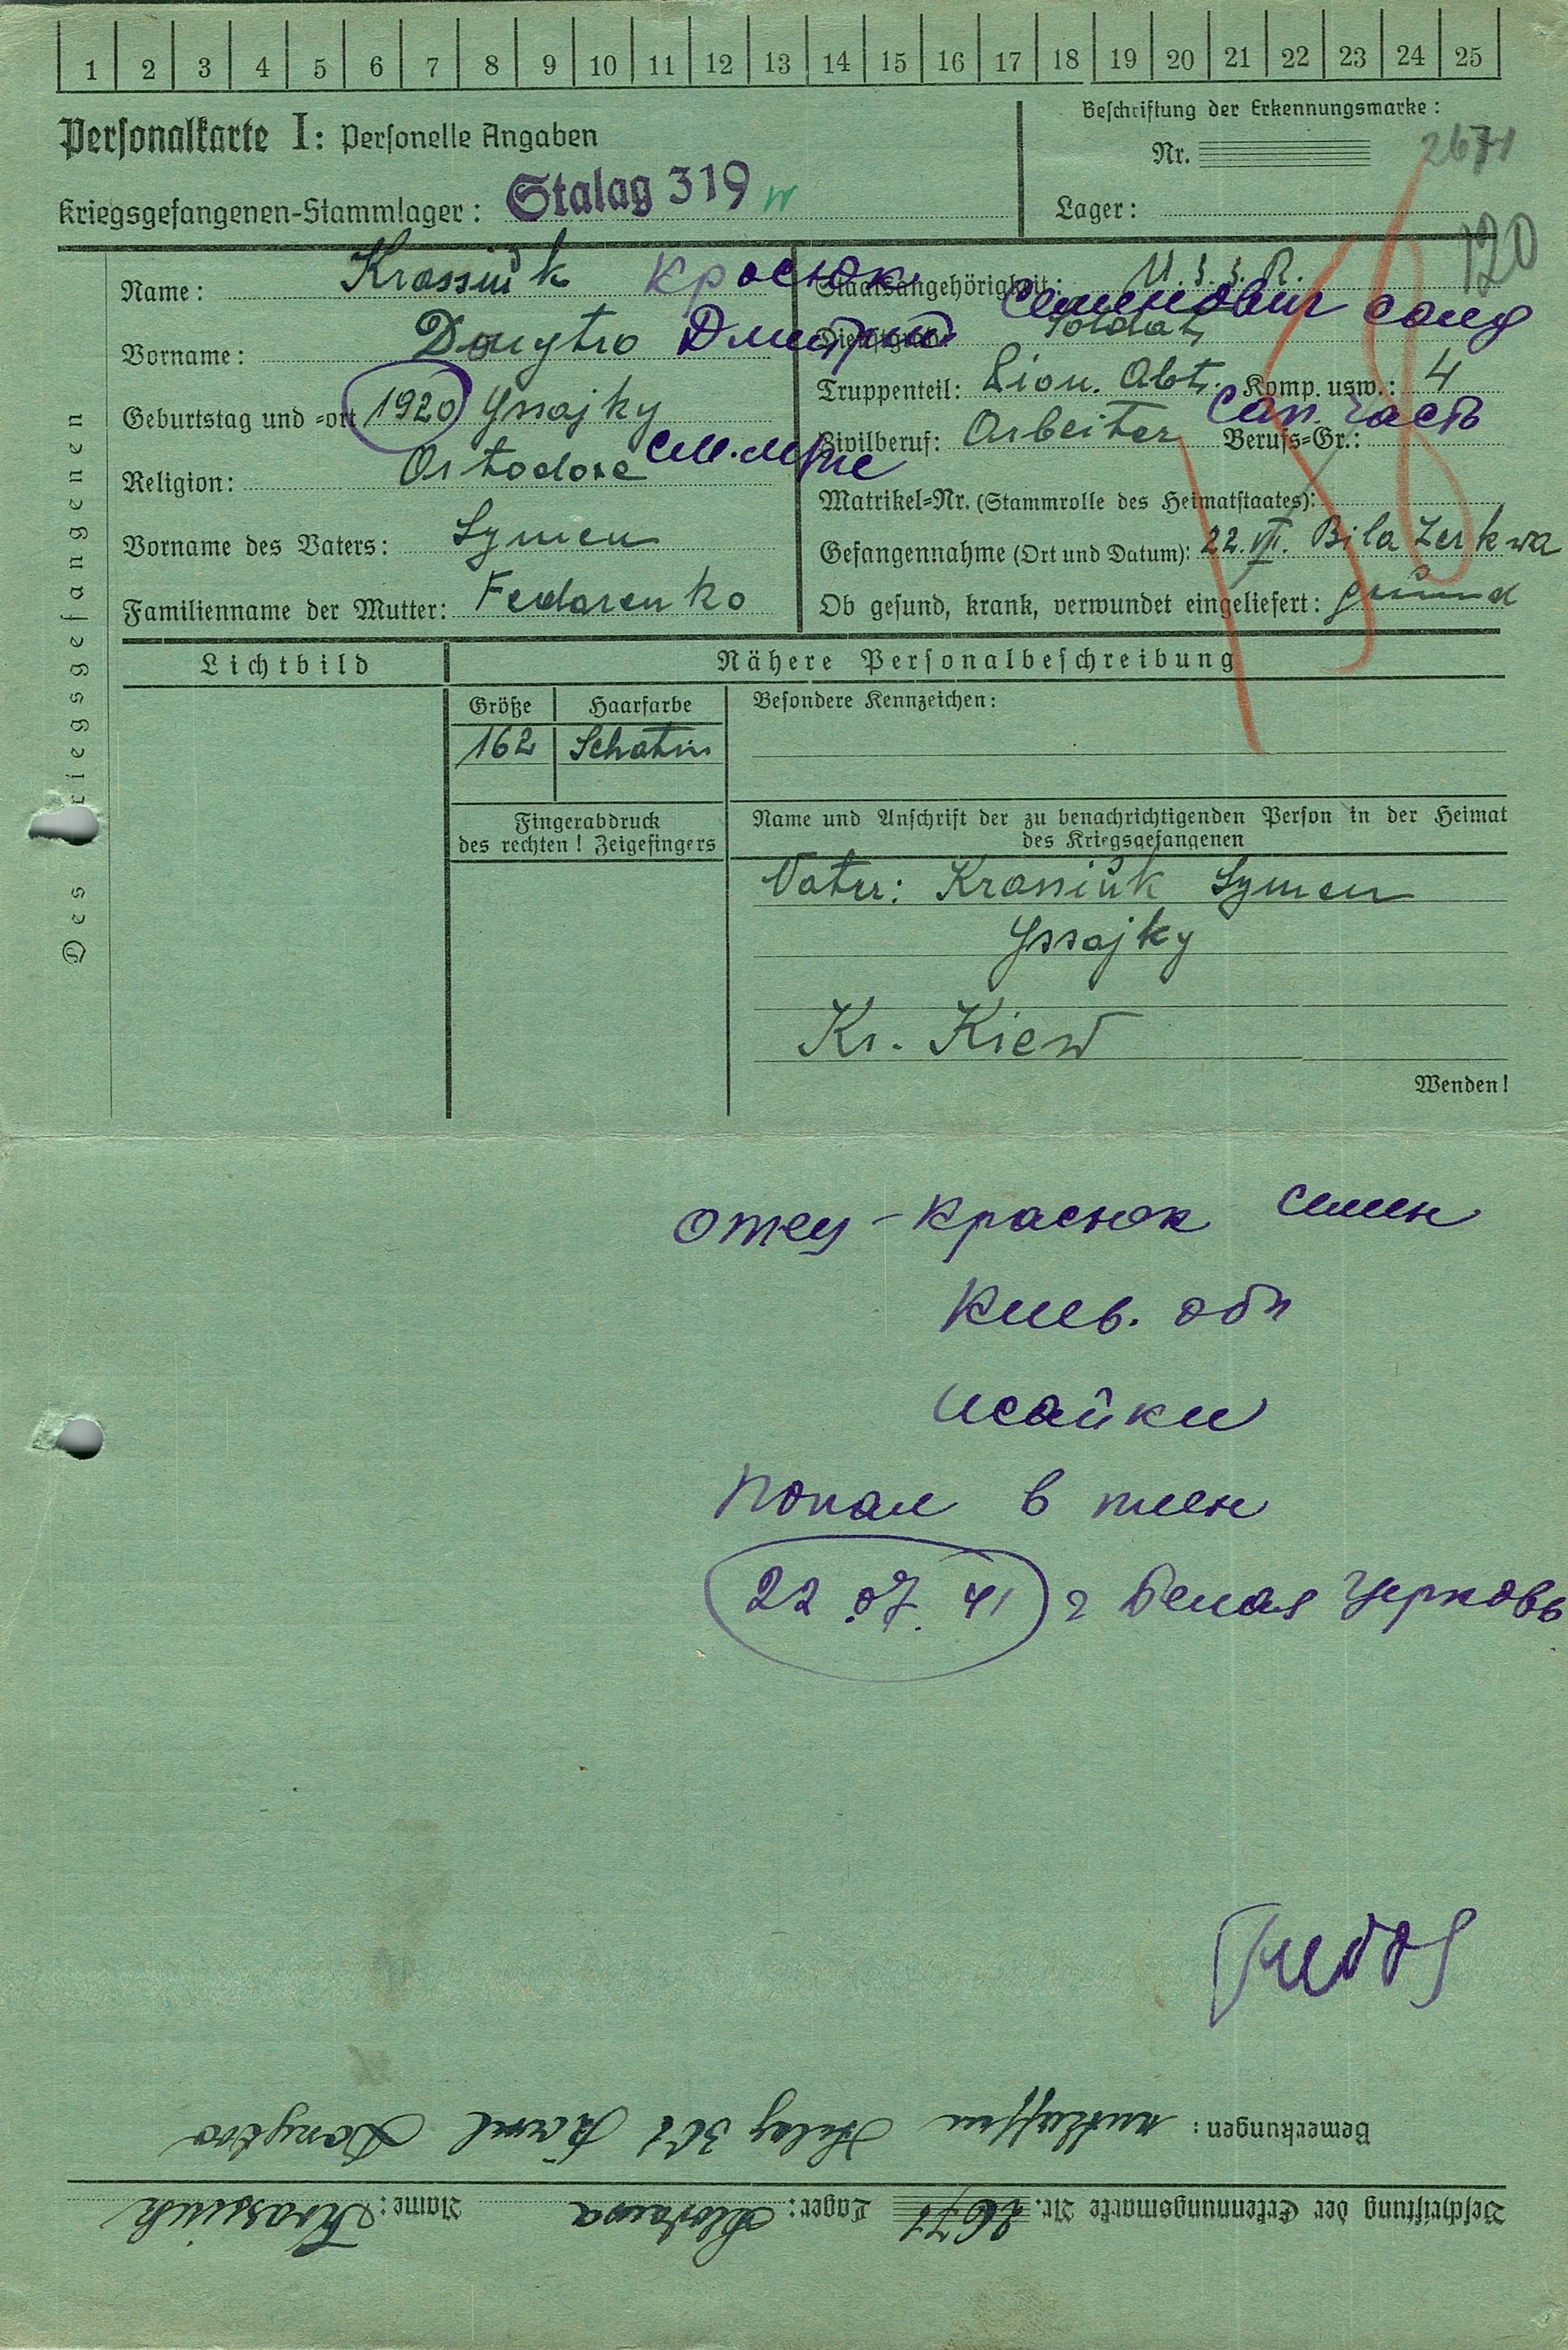 1 2 3 4 5 6 7 8 9 10 11 12 13 14 15 16 17 18 19 20 21 22 23 24 25
Personalkarte I: Personelle Angaben
Beschriftung der Erkennungsmarke:
Nr. 2671
Kriegsgefangenen-Stammlager: Stalag 319
Lager:
120
Des Kriegsgefangenen
Name: Krassiuk Красюк
Staatsangehörigkeit: U.S.S.R.
Семенович солд
Vorname: Dmytro Дмитрий
Dienstgrad: Soldat
Geburtstag und -ort 1920 Yssajky
Truppenteil: Pion. Abt. Komp. usw.: 4
сап. часть
Religion: Ortodoxe
Zivilberuf: Arbeiter Berufs-Gr.:
Matrikel-Nr. (Stammrolle des Heimatstaates):
Vorname des Vaters: Symen
Gefangennahme (Ort und Datum): 22. VII. Bila Zerkwa
Familienname der Mutter: Fedorenko
Ob gesund, krank, verwundet eingeliefert:
Lichtbild
Nähere Personalbeschreibung
Größe Haarfarbe
Besondere Kennzeichen:
162 Schatin
Fingerabdruck
des rechten! Zeigefingers
Name und Anschrift der zu benachrichtigenden Person in der Heimat
des Kriegsgefangenen
Vater: Krassiuk Symen
Yssajky
Kr. Kiew
Wenden!
отец - Красюк Семен
Киев. обл
Исайки
попал в плен
22.07.41 г Белая Церковь
Bemerkungen: entlassen Stalag
Beschriftung der Erkennungsmarke Nr. 2671 Lager: Name: Krassiuk